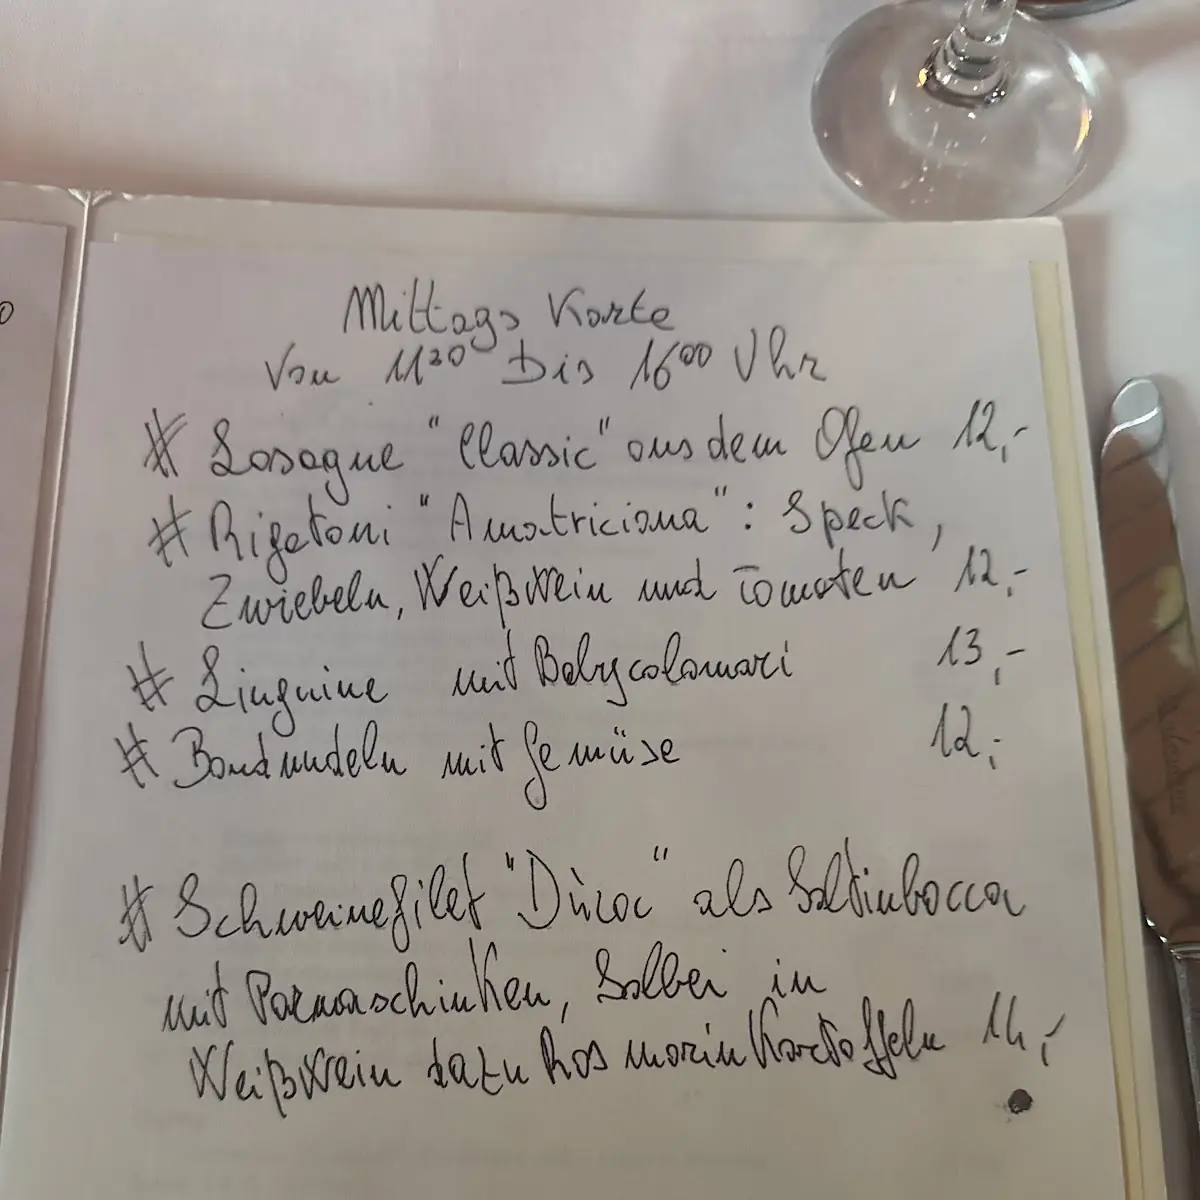 Mittags Karte
Von 11³⁰ Bis 16⁰⁰ Uhr
# Lasagne "Classic" aus dem Ofen 12,-
# Rigatoni "Amatriciana": Speck,
Zwiebeln, Weißwein und Tomaten 12,-
# Linguine mit Babycalamari 13,-
# Bandnudeln mit Gemüse 12,-
# Schweinefilet "Dùroc" als Saltinbocca
mit Parmaschinken, Salbei in
Weißwein dazu Rosmarin Kartoffeln 14,-